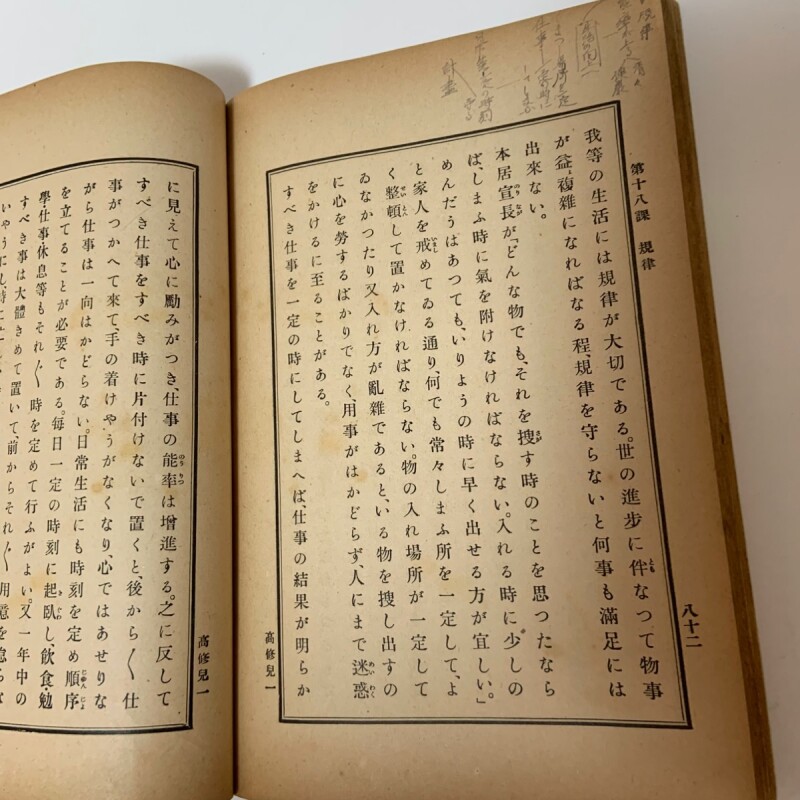 第十八課 規律
八十二
我等の生活には規律が大切である。世の進步に伴なつて物事
が益〻複雜になればなる程、規律を守らないと何事も滿足には
出來ない。
本居宣長が「どんな物でも、それを搜す時のことを思つたなら
ば、しまふ時に氣を附けなければならない。入れる時に少しの
めんだうはあつても、いりようの時に早く出せる方が宜しい。」
と家人を戒めてゐる通り、何でも常々しまふ所を一定して、よ
く整頓して置かなければならない。物の入れ場所が一定して
ゐなかつたり又入れ方が亂雜であると、いる物を搜し出すの
に心を勞するばかりでなく、用事がはかどらず、人にまで迷惑
をかけるに至ることがある。
すべき仕事を一定の時にしてしまへば、仕事の結果が明らか
高修兒一
に見えて心に勵みがつき、仕事の能率は增進する。之に反して
すべき仕事をすべき時に片付けないで置くと、後から〱仕
事がつかへて來て、手の着けやうがなくなり、心ではあせりな
がら仕事は一向はかどらない。日常生活にも時刻を定め順序
を立てることが必要である。每日一定の時刻に起臥し、飮食・勉
學・仕事・休息等もそれ〲時を定めて行ふがよい。又一年中の
すべき事は大體きめて置いて、前からそれ〲用意を怠らな
高修兒一